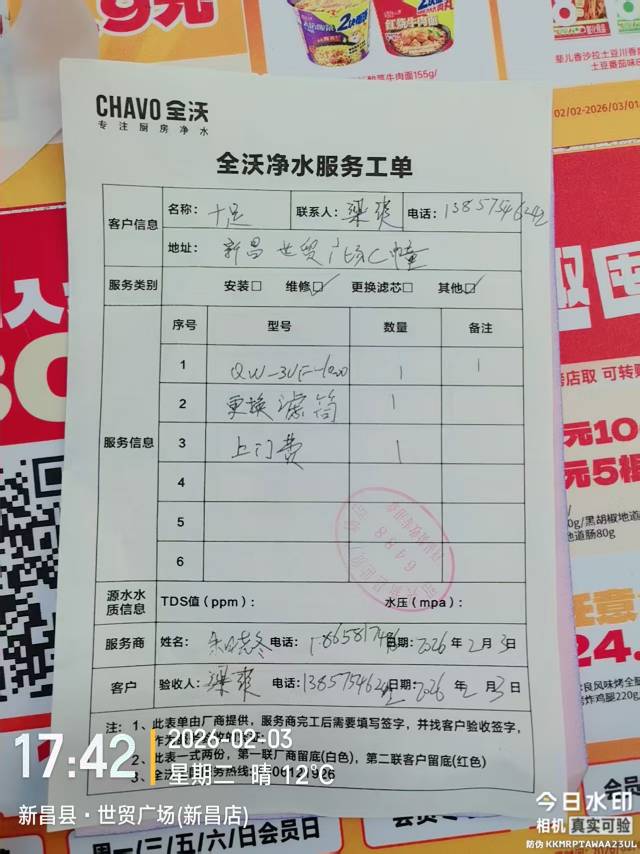 红烧牛肉面
酸菜牛肉面155g/
土豆番茄味8
02/02-2026/03/01
CHAVO 全沃
专注厨房净水
全沃净水服务工单
客户信息 名称：十足 联系人：梁爽 电话：13857546242
地址：新昌世贸广场C幢
服务类别 安装□ 维修☑ 更换滤芯□ 其他☑
服务信息 序号 型号 数量 备注
1 QW-3UF-1000 1 1
2 更换滤筒 1
3 上门费 1
4
5
6
6488
源水水质信息 TDS值（ppm）： 水压（mpa）：
服务商 姓名： 电话： 日期：2026年2月3日
客户 验收人：梁爽 电话：13857546242 日期：2026年2月3日
注：1、此表单由厂商提供，服务商完工后需要填写签字，并找客户验收签字，
2、此表一式两份，第一联厂商留底(白色)，第二联客户留底(红色)
17:42
2026-02-03
星期二 晴 12℃
新昌县·世贸广场(新昌店)
今日水印
相机 真实可验
防伪 KKMRPTAWAA23UL
周一/三/五/六/日会员日
元10
元5
g/黑胡椒地道
地道肠80g
任意
24.
良风味烤全腿
炸鸡腿220g